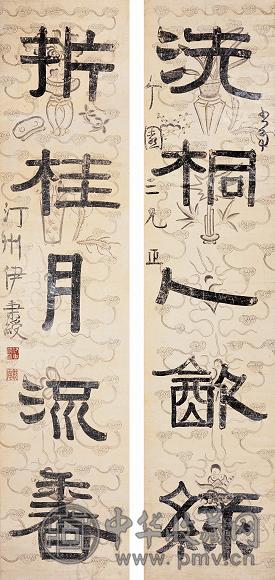 洗桐人㱃綠
園二兄正
折桂月流香
汀州伊秉綬
中华收藏网
www.pmv.cn